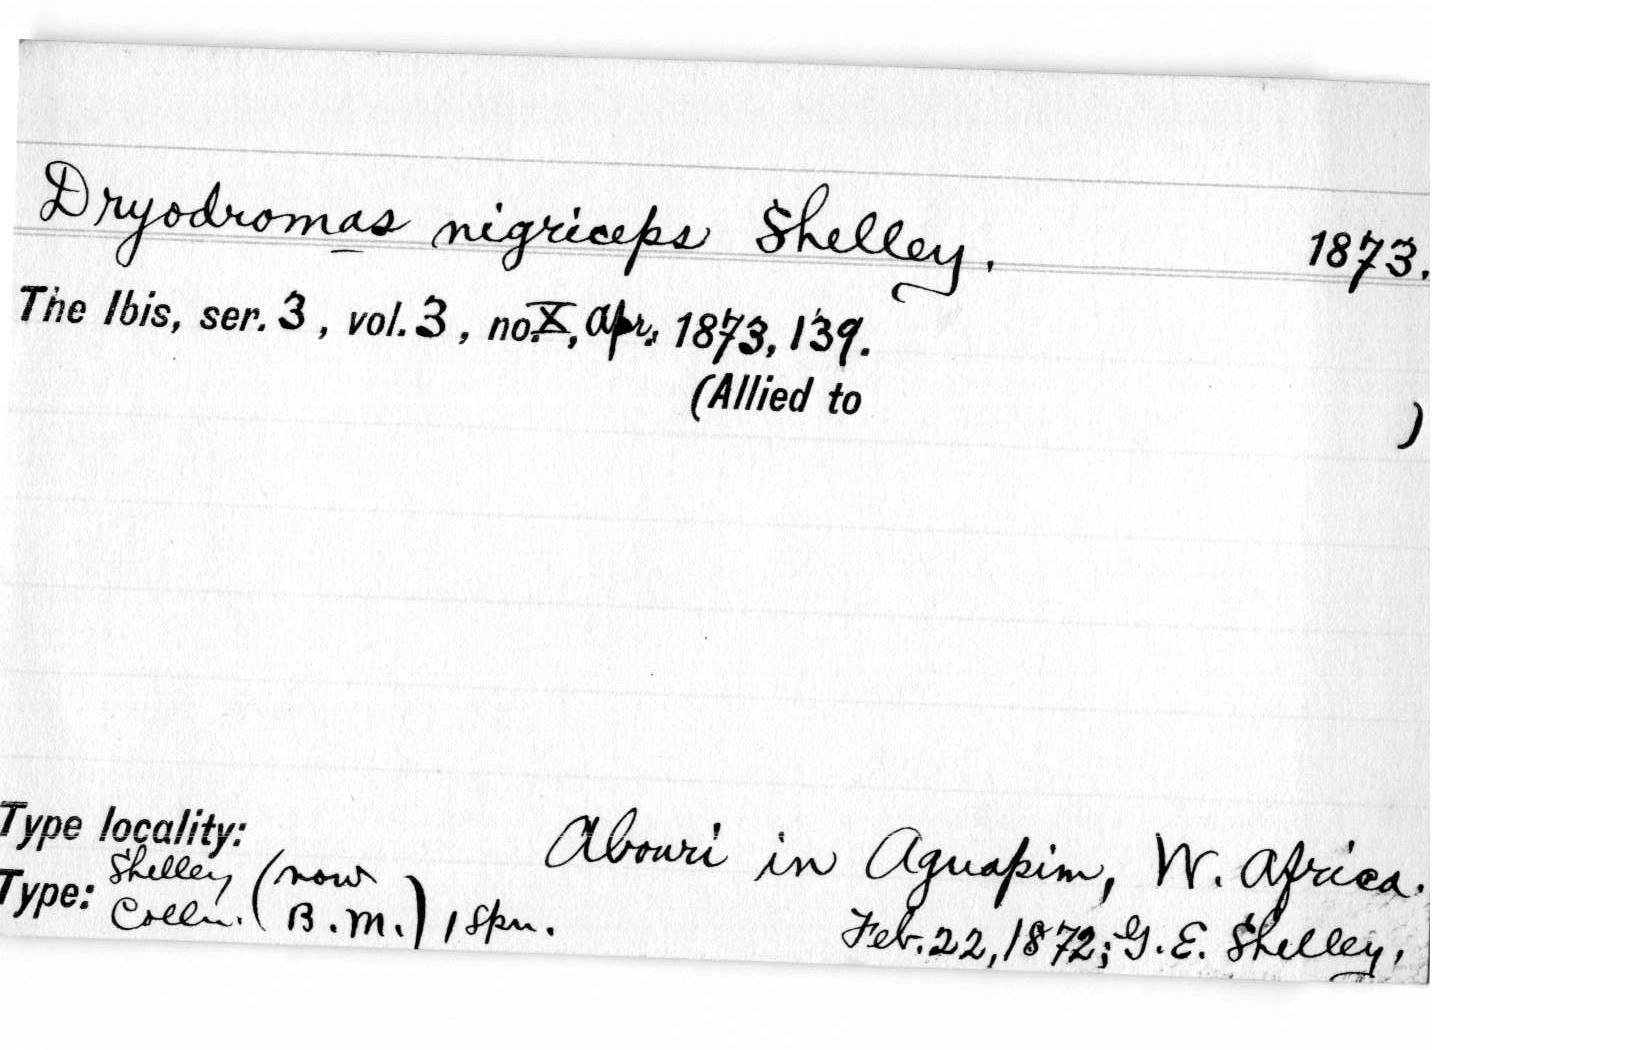 Dryodromas nigriceps Shelley. 1873.
The Ibis, ser. 3, vol. 3, no. X, Apr. 1873, 139.
(Allied to )
Type locality: Abouri in Aguapim, W. Africa.
Type: Shelley Colln. (now B.M.) 1 spn. Feb. 22, 1872; G. E. Shelley.